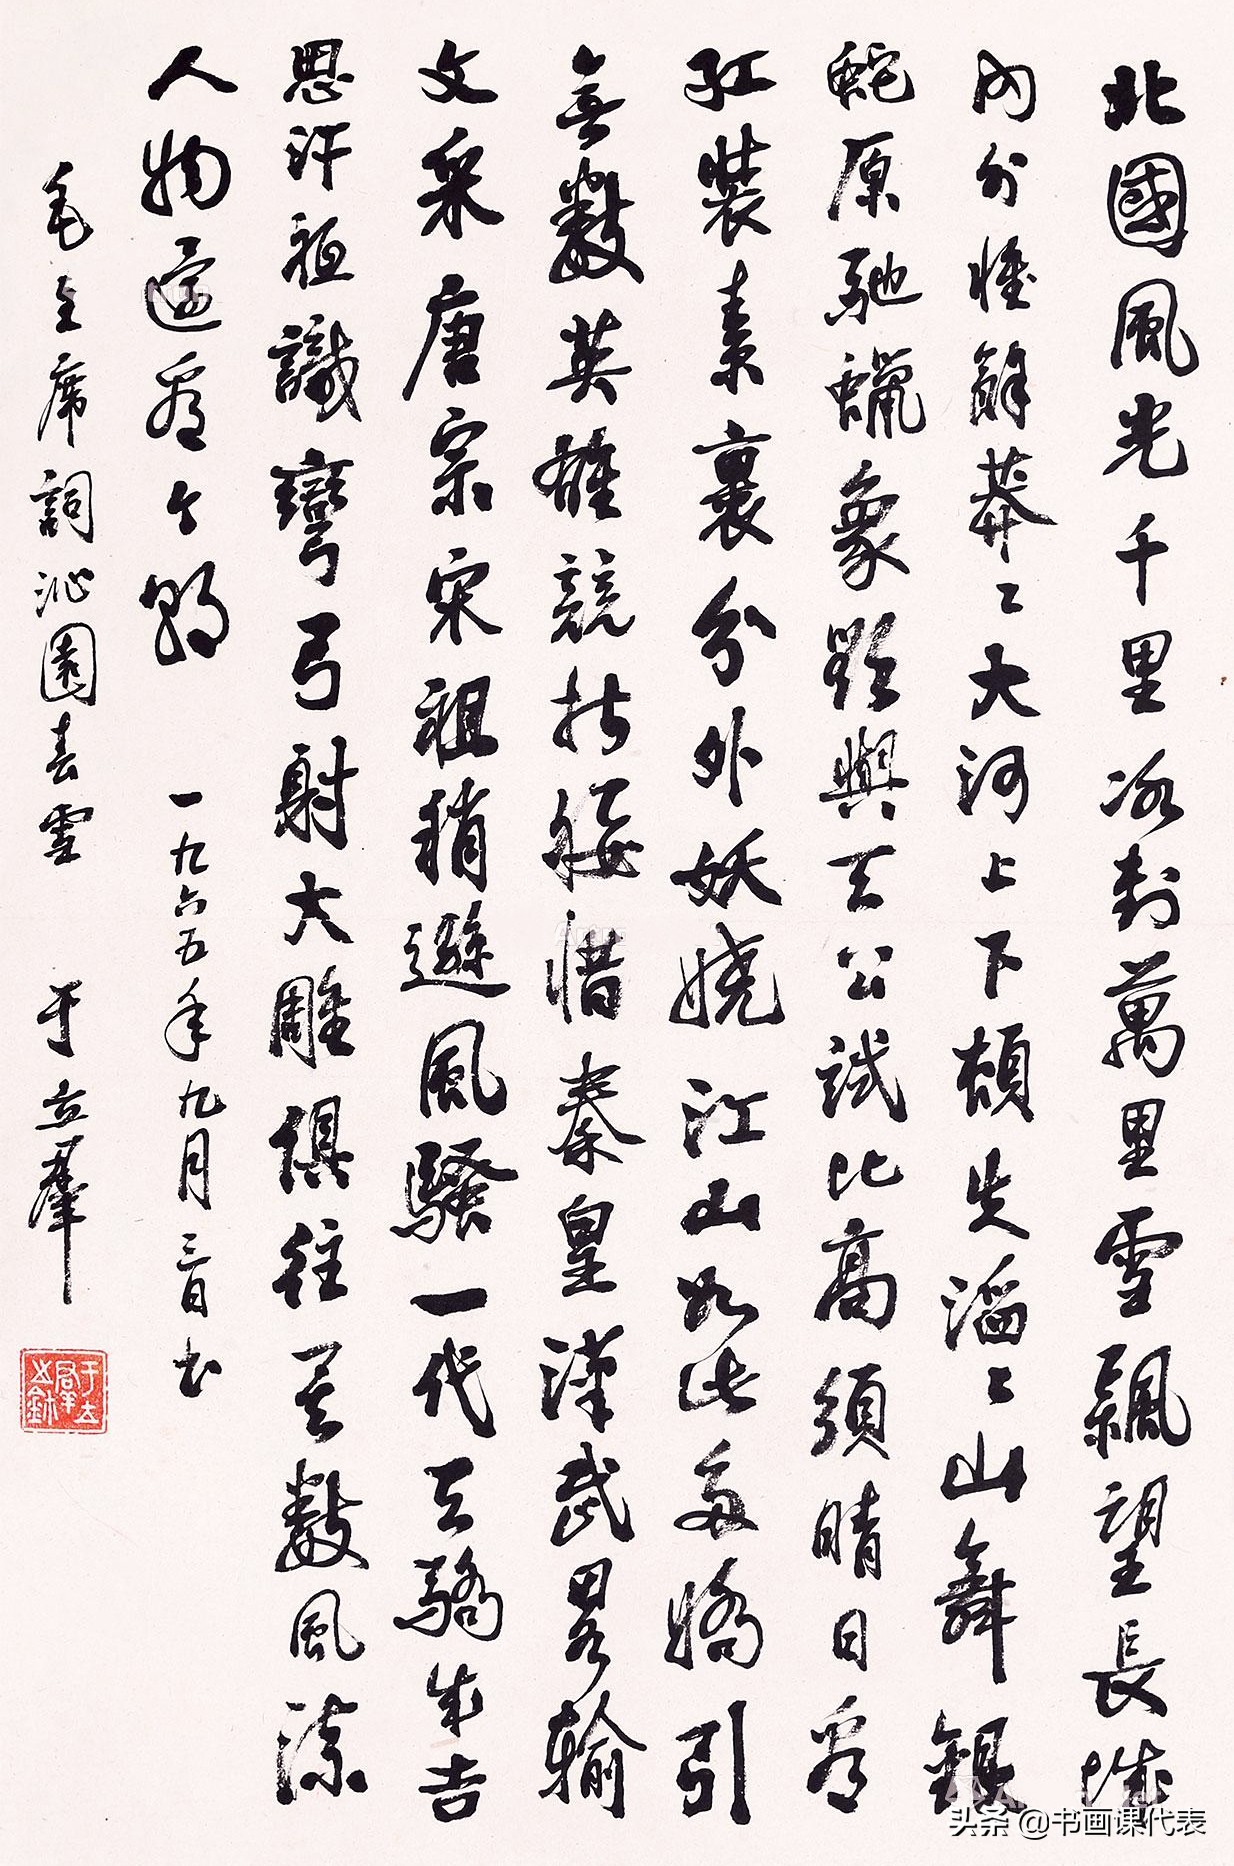 北國風光千里冰封萬里雪飄望長城
內外惟餘莽〻大河上下頓失滔〻山舞銀
蛇原馳蠟象欲與天公試比高須晴日看
紅裝素裹分外妖嬈江山如此多嬌引
無數英雄競折腰惜秦皇漢武畧輸
文采唐宗宋祖稍遜風騷一代天驕成吉
思汗祗識彎弓射大雕俱往矣數風流
人物還看今朝 一九六五年九月三日書
毛主席詞沁園春雪 于立羣
头条 @书画课代表